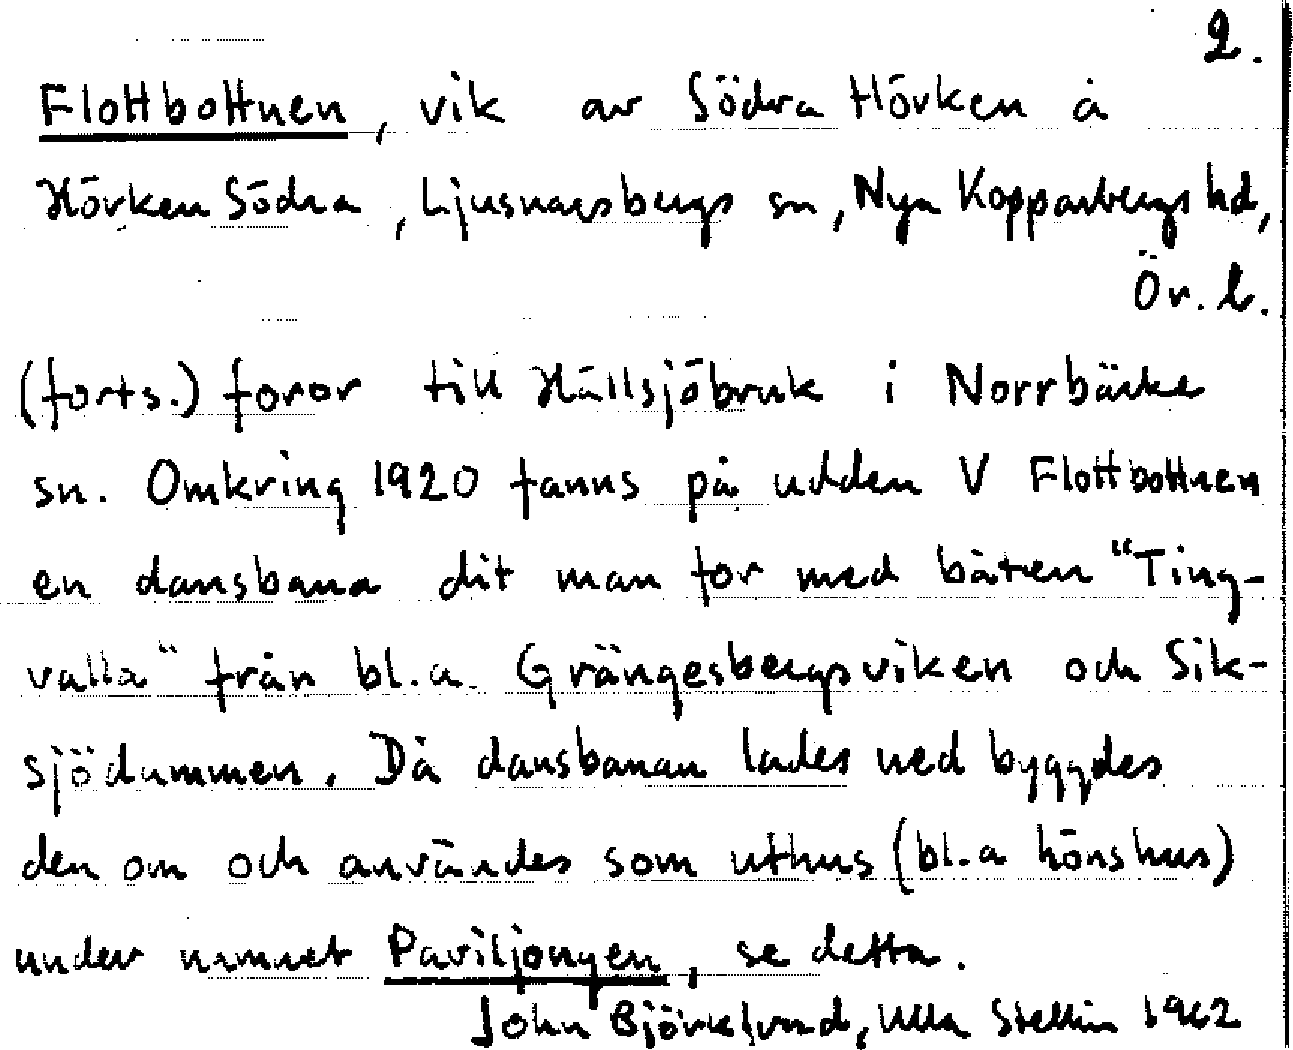 2.
Flottbottnen, vik av Södra Hörken å
Hörken Södra, Ljusnarsbergs sn, Nya Kopparbergs hd,
Ör. l.
(forts.) foror till Hällsjöbruk i Norrbärke
sn. Omkring 1920 fanns på udden V Flottbottnen
en dansbana dit man for med båten "Ting-
valla" från bl.a. Grängesbergsviken och Sik-
sjödammen. Då dansbanan lades ned byggdes
den om och användes som uthus (bl.a hönshus)
under namnet Paviljongen, se detta.
John Björklund, Ulla Stellin 1962